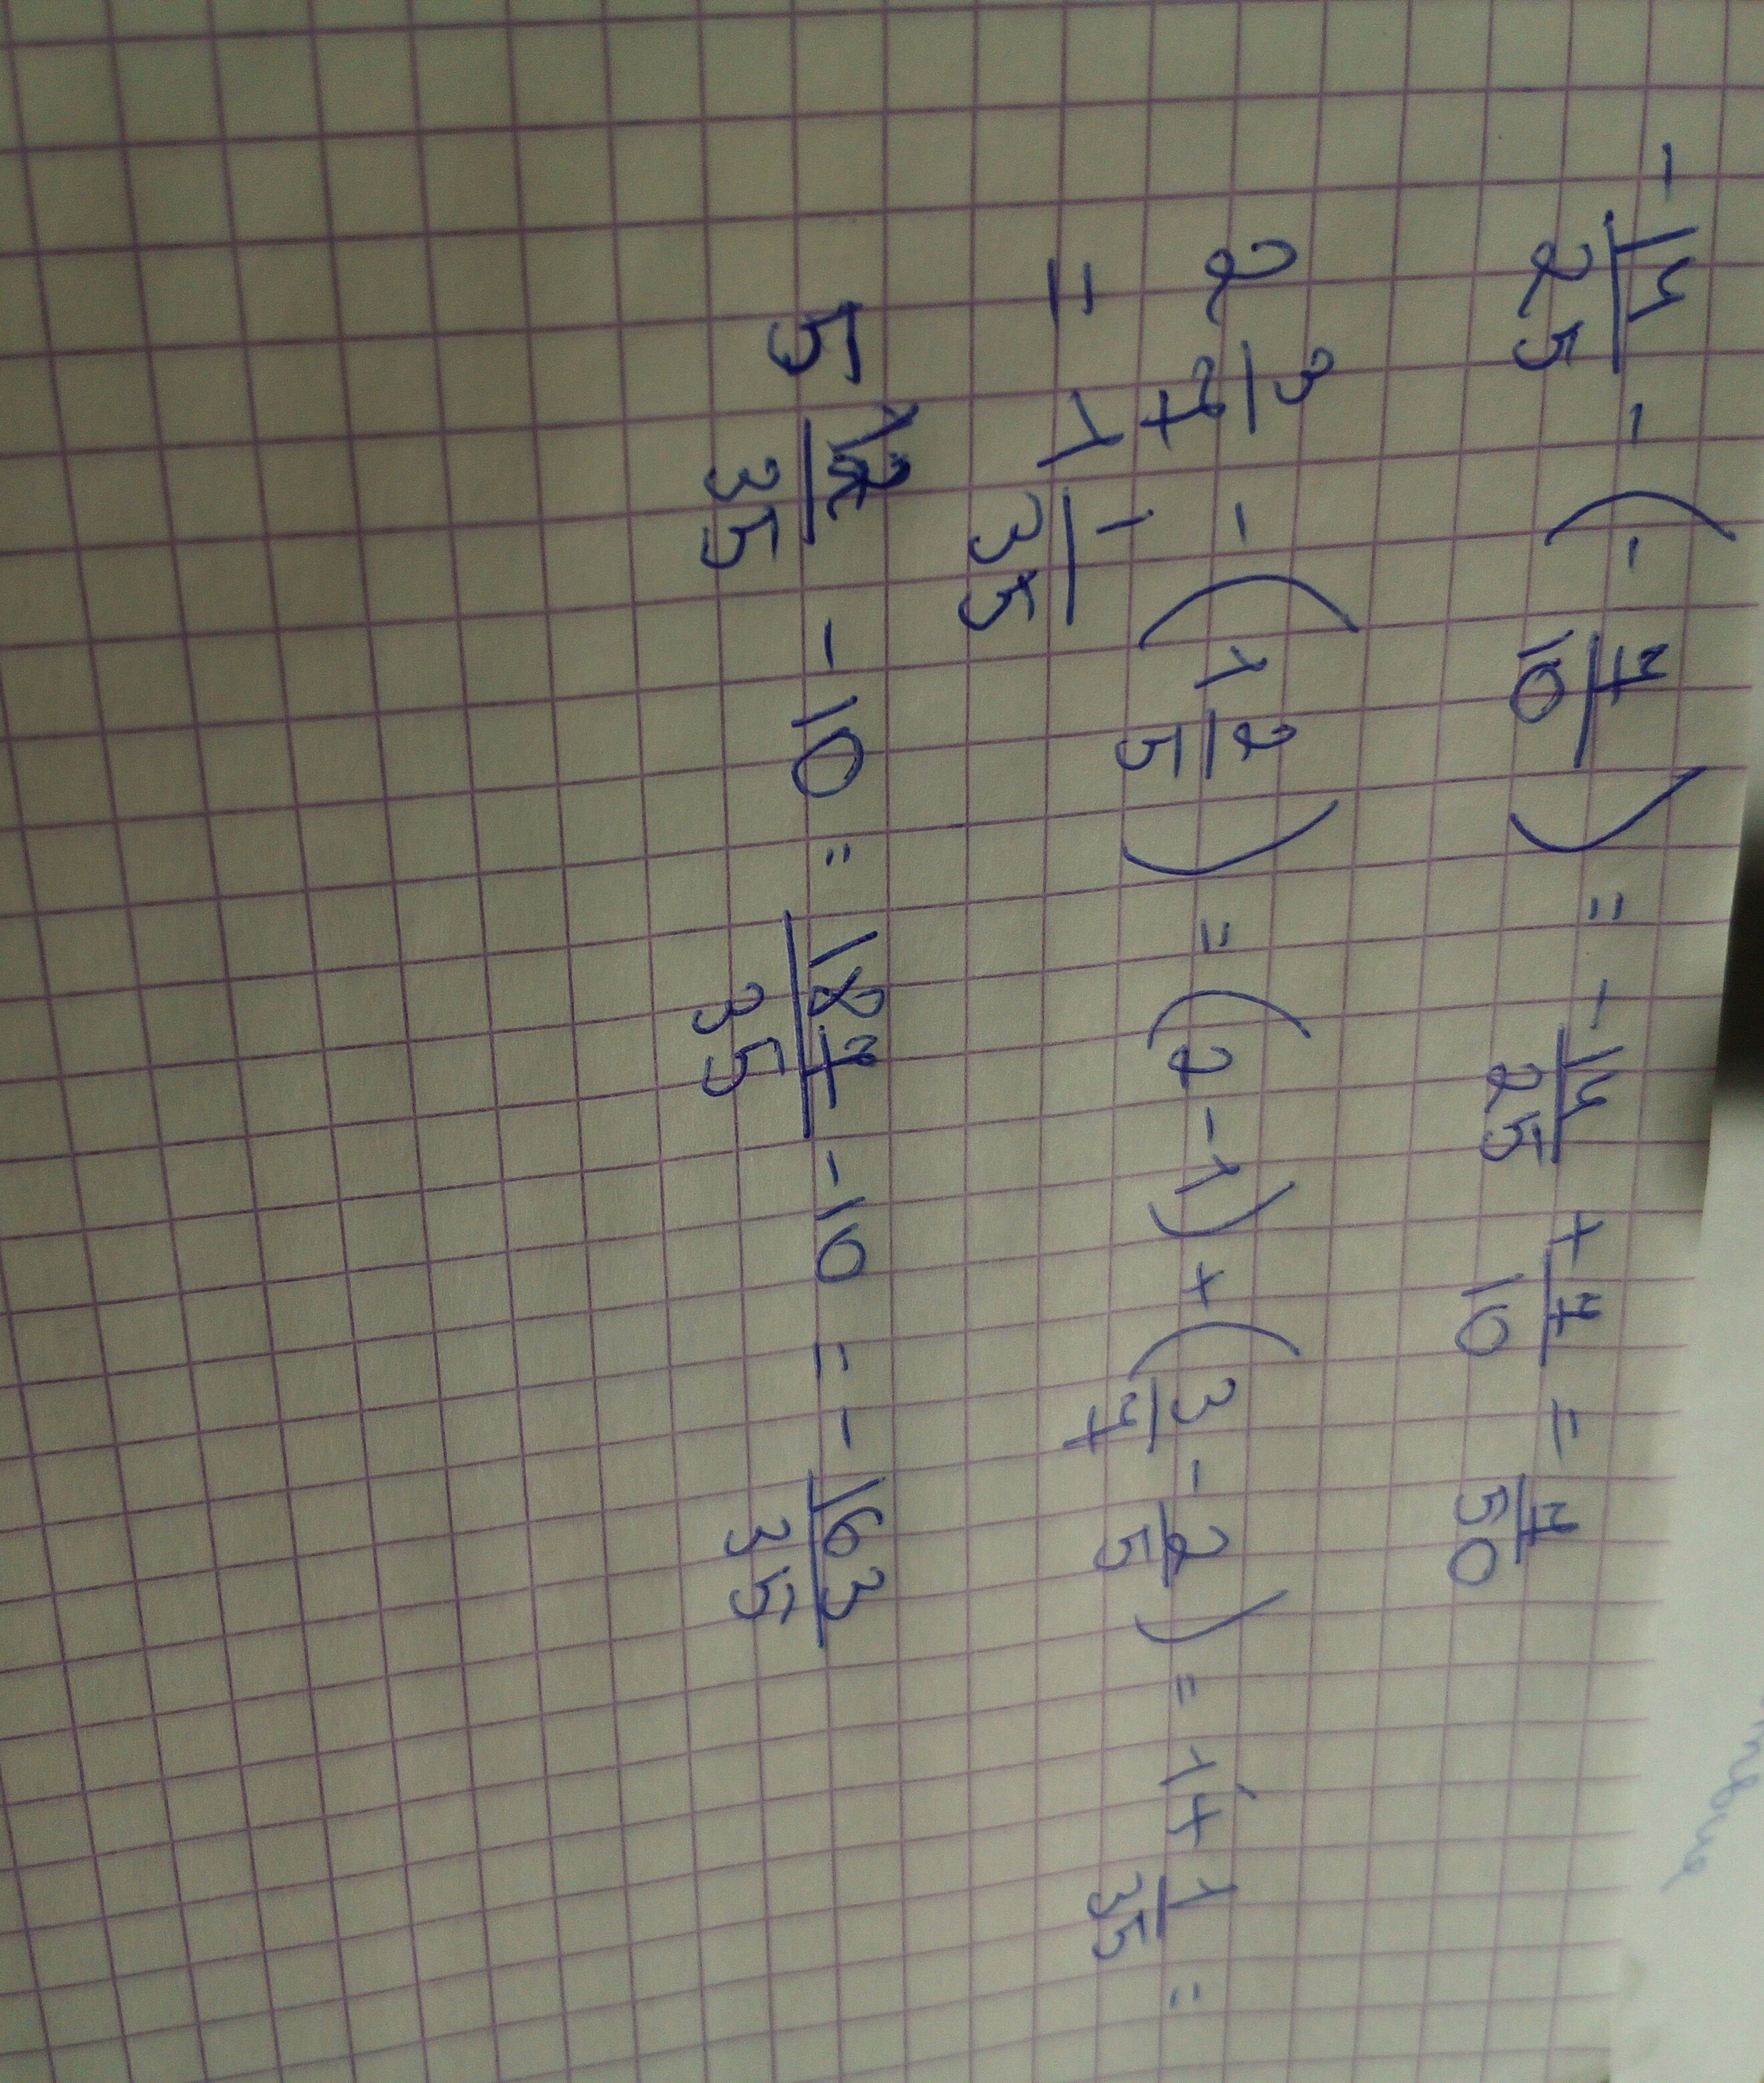 -14/25 - (-7/10) = -14/25 + 7/10 = 7/50
2 3/7 - (1 2/5) = (2-1) + (3/7 - 2/5) = 1+ 1/35 =
= 1 1/35
5 12/35 - 10 = 187/35 - 10 = - 163/35